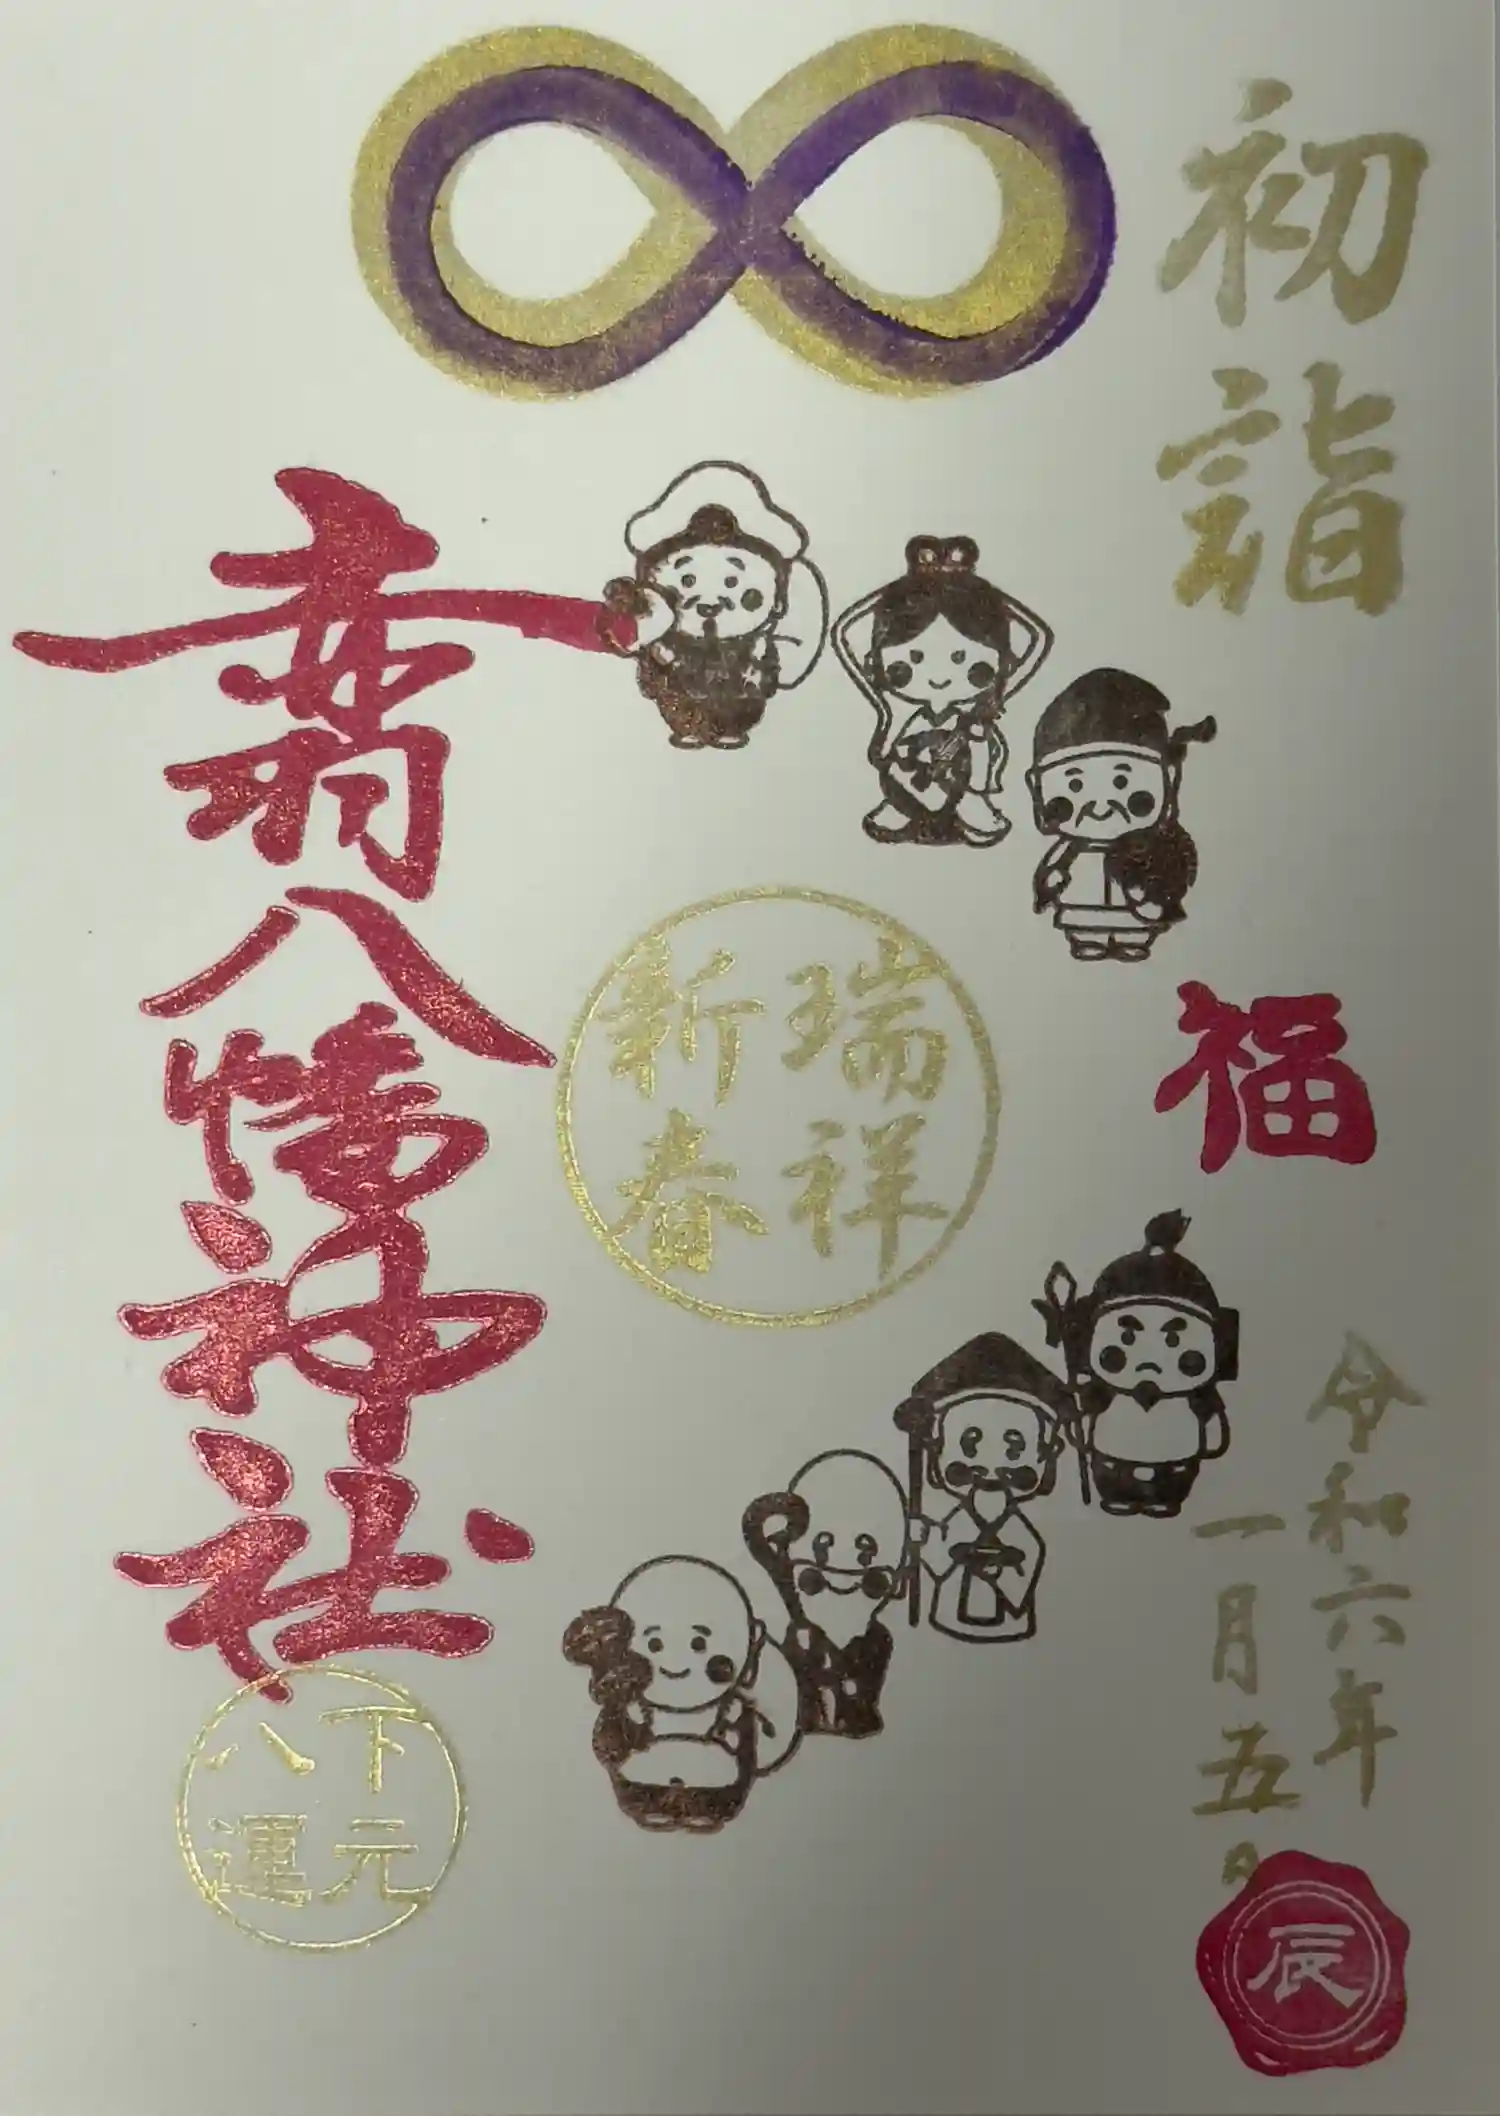 初詣
福
瑞祥
新春
令和六年
一月五日
辰
八幡神社
下元
八運